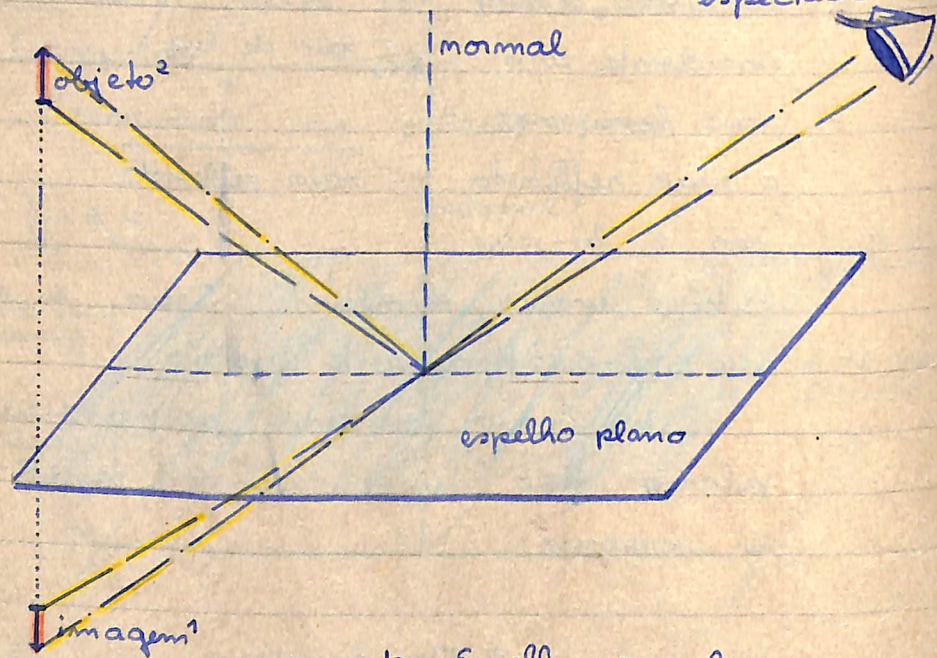 normal
objeto²
espelho plano
imagem¹